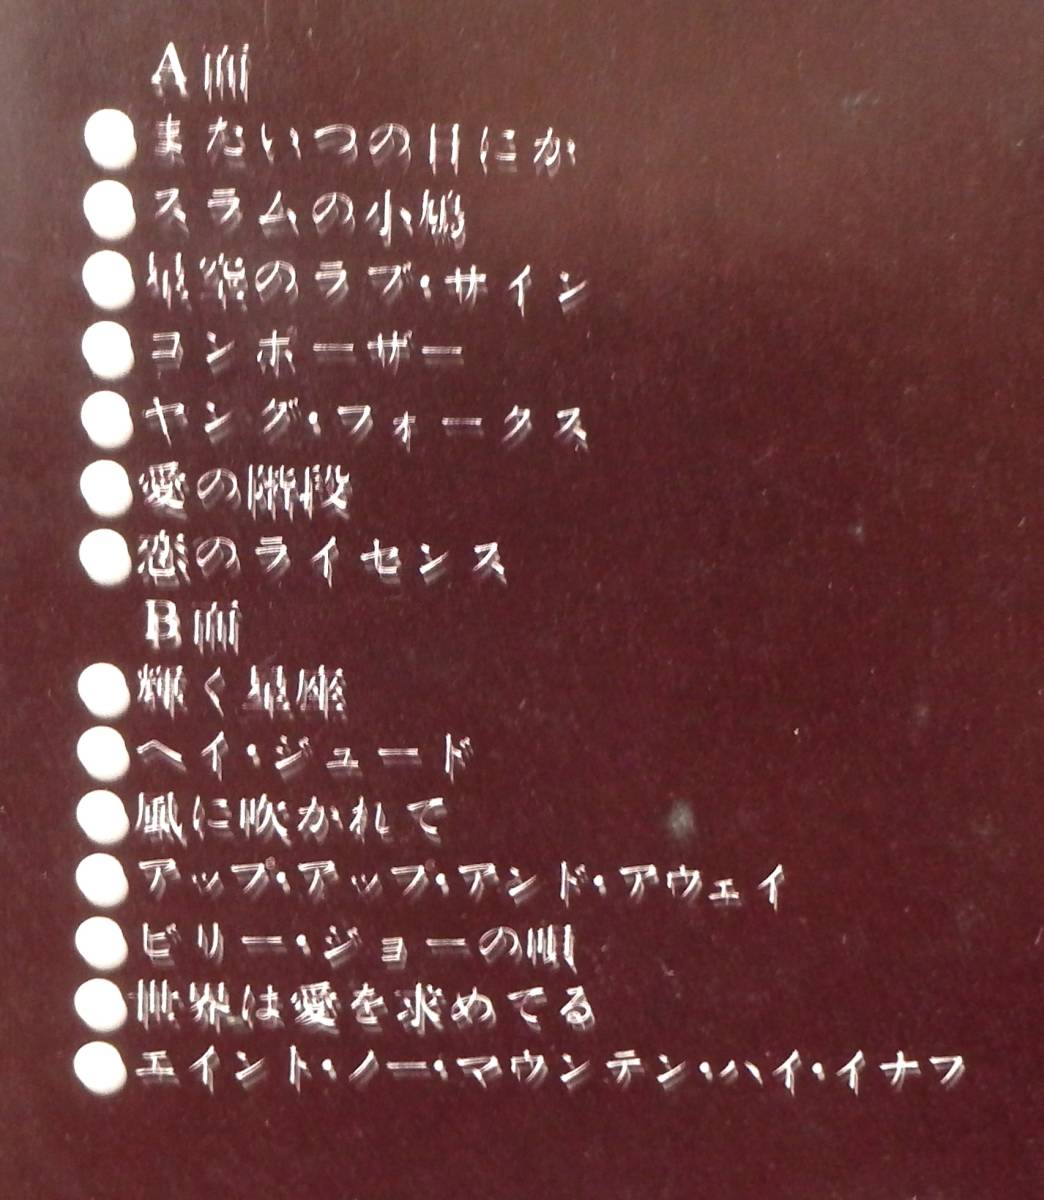 A面
●またいつの日にか
●スラムの小鳩
●星空のラブ・サイン
●コンポーザー
●ヤング・フォークス
●愛の階段
●恋のライセンス
B面
●輝く星座
●ヘイ・ジュード
●風に吹かれて
●アップ・アップ・アンド・アウェイ
●ビリー・ジョーの唄
●世界は愛を求めてる
●エイント・ノー・マウンテン・ハイ・イナフ